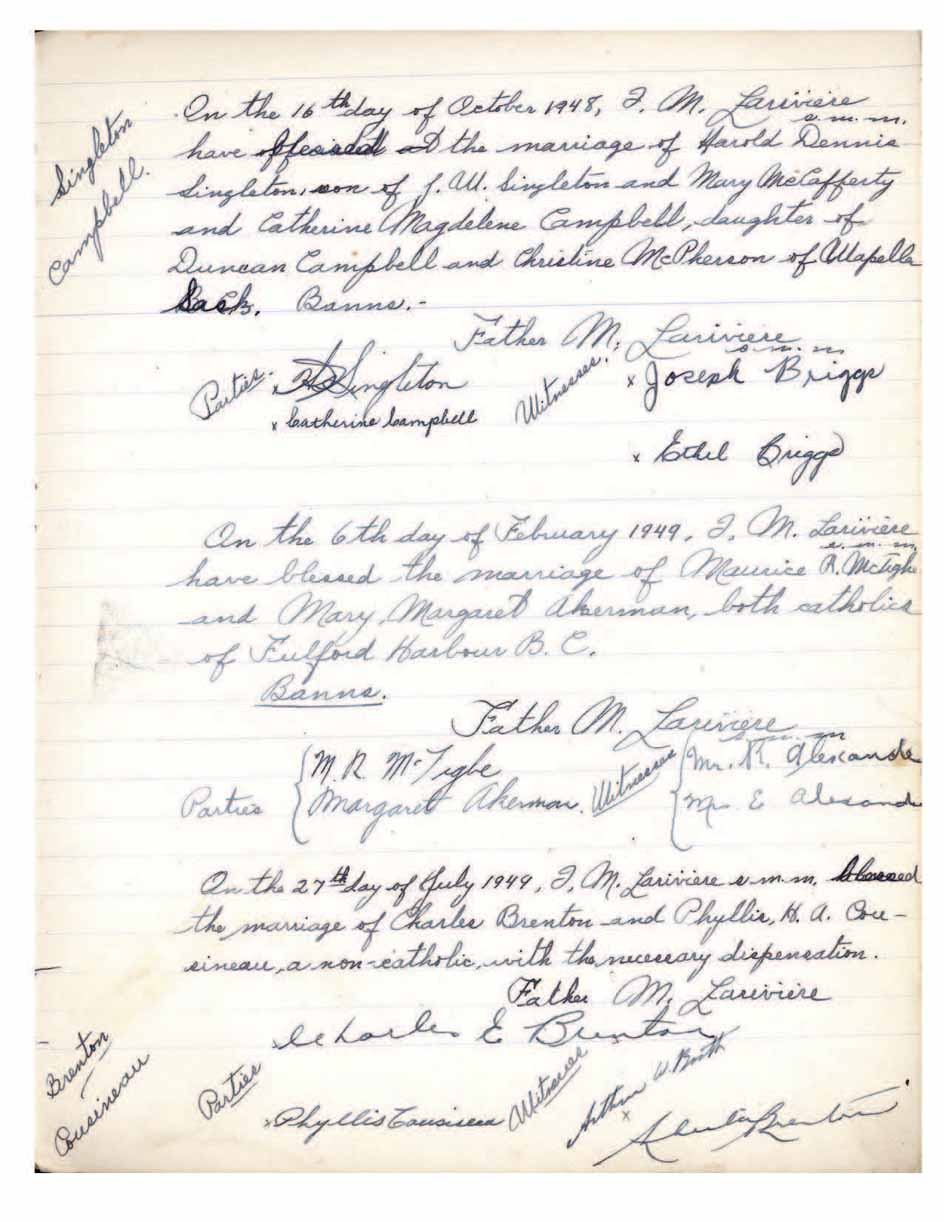 Singleton
Campbell.
On the 16th day of October 1948, I, M. Larivière
s.m.m.
have officiated at the marriage of Harold Dennis
Singleton, son of J. W. Singleton and Mary McCafferty
and Catherine Magdelene Campbell, daughter of
Duncan Campbell and Christine McPherson of Wapella
Sask. Banns.-
Father M. Larivière
s.m.m
Parties. x H D Singleton Witnesses: x Joseph Briggs
x Catherine Campbell
x Ethel Briggs
On the 6th day of February 1949, I, M. Larivière
s.m.m.
have blessed the marriage of Maurice R. McTighe
and Mary, Margaret Akerman, both catholics
of Fulford Harbour B. C.
Banns.
Father M. Larivière
s.m.m
Parties M. R. McTighe Witnesses Mr. R. Alexande
Margaret Akerman. Mrs E Alexande
On the 27th day of July 1949, I, M. Larivière s.m.m. blessed
the marriage of Charles Brenton and Phyllis, H. A. Cou-
sineau, a non-catholic, with the necessary dispensation.
Father M. Larivière
Brenton
Cousineau
Parties x Charles E Brenton Witnesses x Arthur W. Booth
x Phyllis Cousineau
Brenton